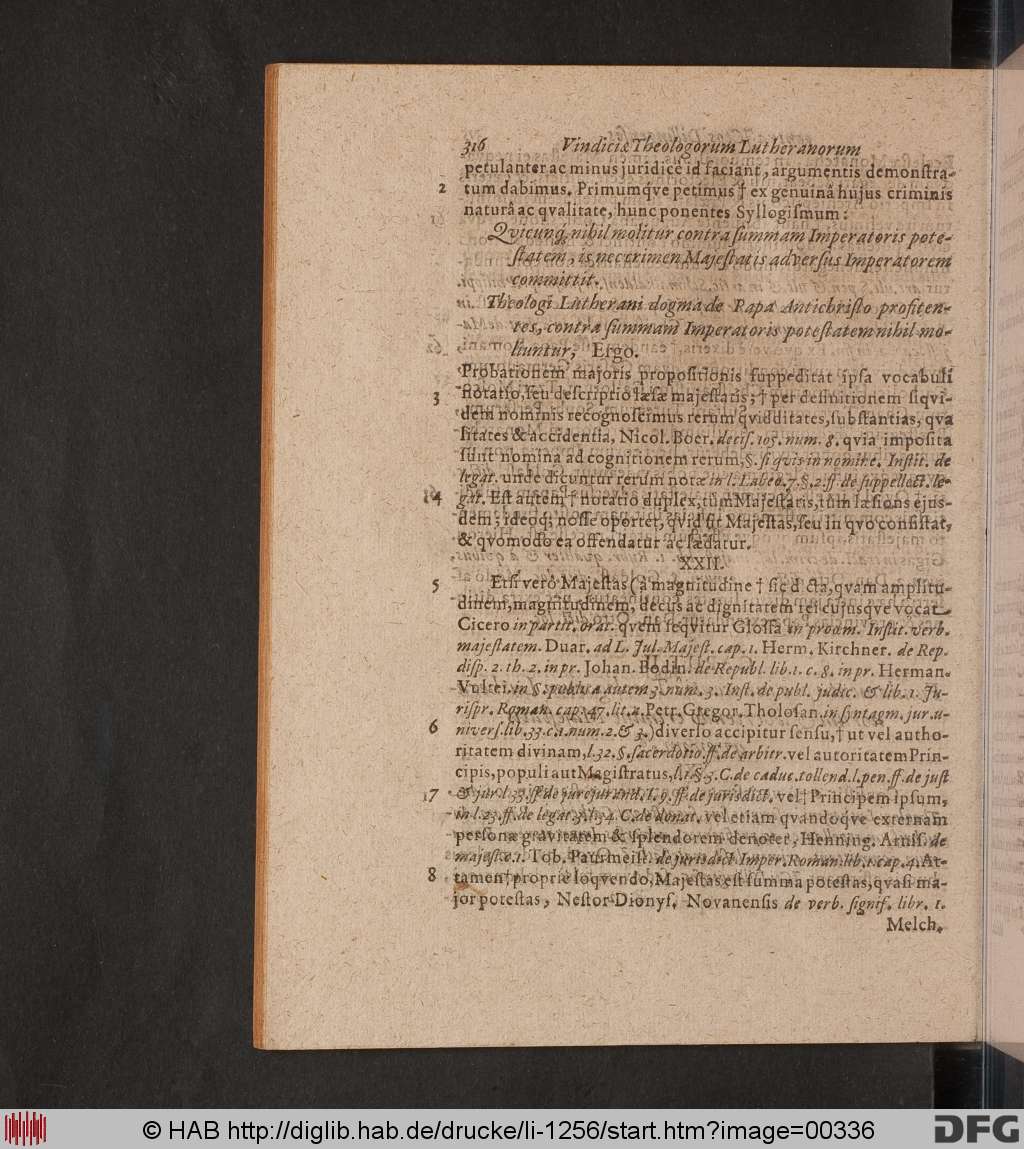 316 Vindiciæ Theologorum Lutheranorum
petulanter ac minus juridicè id faciant, argumentis demonſtra-
2 tum dabimus. Primumq́ve petimus † ex genuinâ hujus criminis
naturâ ac qvalitate, hunc ponentes Syllogiſmum:
Qvicunq́; nihil molitur contra ſummam Imperatoris pote-
ſtatem, is nec crimen Majeſtatis adverſus Imperatorem
committit.
Theologi Lutherani dogma de Papa Antichriſto profiten-
tes, contra ſummam Imperatoris poteſtatem nihil mo-
liuntur, Ergo.
Probationem majoris propoſitionis ſuppeditat ipſa vocabuli
3 notatio, ſeu deſcriptio læſæ majeſtatis; † per definitionem ſiqvi-
dem nominis recognoſcimus rerum qvidditates, ſubſtantias, qva
litates & accidentia, Nicol. Boër. deciſ. 105. num. 8. qvia impoſita
ſunt nomina ad cognitionem rerum, §. ſi quis in nomine. Inſtit. de
legat. unde dicuntur rerum notæ in l. Labeo. 7. §. 2. ff. de ſuppellect. le-
4 gat. Eſt autem † notatio duplex, tùm Majeſtatis, tùm læſionis ejus-
dem; ideoq; noſſe oportet, qvid ſit Majeſtas, ſeu in qvo conſiſtat,
& qvomodo ea offendatur ac lædatur.
XXII.
5 Etſi verò Majeſtas (à magnitudine † ſic d cta, qvam amplitu-
dinem, magnitudinem, decus ac dignitatem rei cujusqve vocat
Cicero in partit. orat. qvem ſeqvitur Gloſſa in proœm. Inſtit. verb.
majeſtatem. Duar. ad L. Jul. Majeſt. cap. 1. Herm. Kirchner. de Rep.
diſp. 2. th. 2. in pr. Johan. Bodin. de Republ. lib. 1. c. 8. in pr. Herman.
Vultei. in §. publica autem 3. num. 3. Inſt. de publ. judic. & lib. 1. Ju-
riſpr. Roman. cap. 47. lit. z. Petr. Gregor. Tholoſan. in ſyntagm. jur. u-
6 niverſ. lib. 33. c. 1. num. 2. & 3.) diverſo accipitur ſenſu, † ut vel autho-
ritatem divinam, l. 32. §. ſacerdotio. ff. de arbitr. vel autoritatem Prin-
cipis, populi aut Magiſtratus, l. 1. §. 3. C. de caduc. tollend. l. pen. ff. de juſt
7 & jur. l. 33. ff. de jurejurand. l. 9. ff. de jurisdict. vel † Principem ipſum,
in l. 23. ff. de legat. 3. l. 34. C. de donat. vel etiam qvandoqve externam
perſonæ gravitatem & ſplendorem denotet, Henning. Arniſ. de
majeſt. c. 1. Tob. Paurmeiſt. de jurisdict Imper. Roman. lib. 1. cap. 4. At-
8 tamen † proprie loqvendo, Majeſtas eſt ſumma poteſtas, qvaſi ma-
jor poteſtas, Neſtor Dionyſ. Novanenſis de verb. ſignif. libr. 1.
Melch.
© HAB http://diglib.hab.de/drucke/li-1256/start.htm?image=00336
DFG